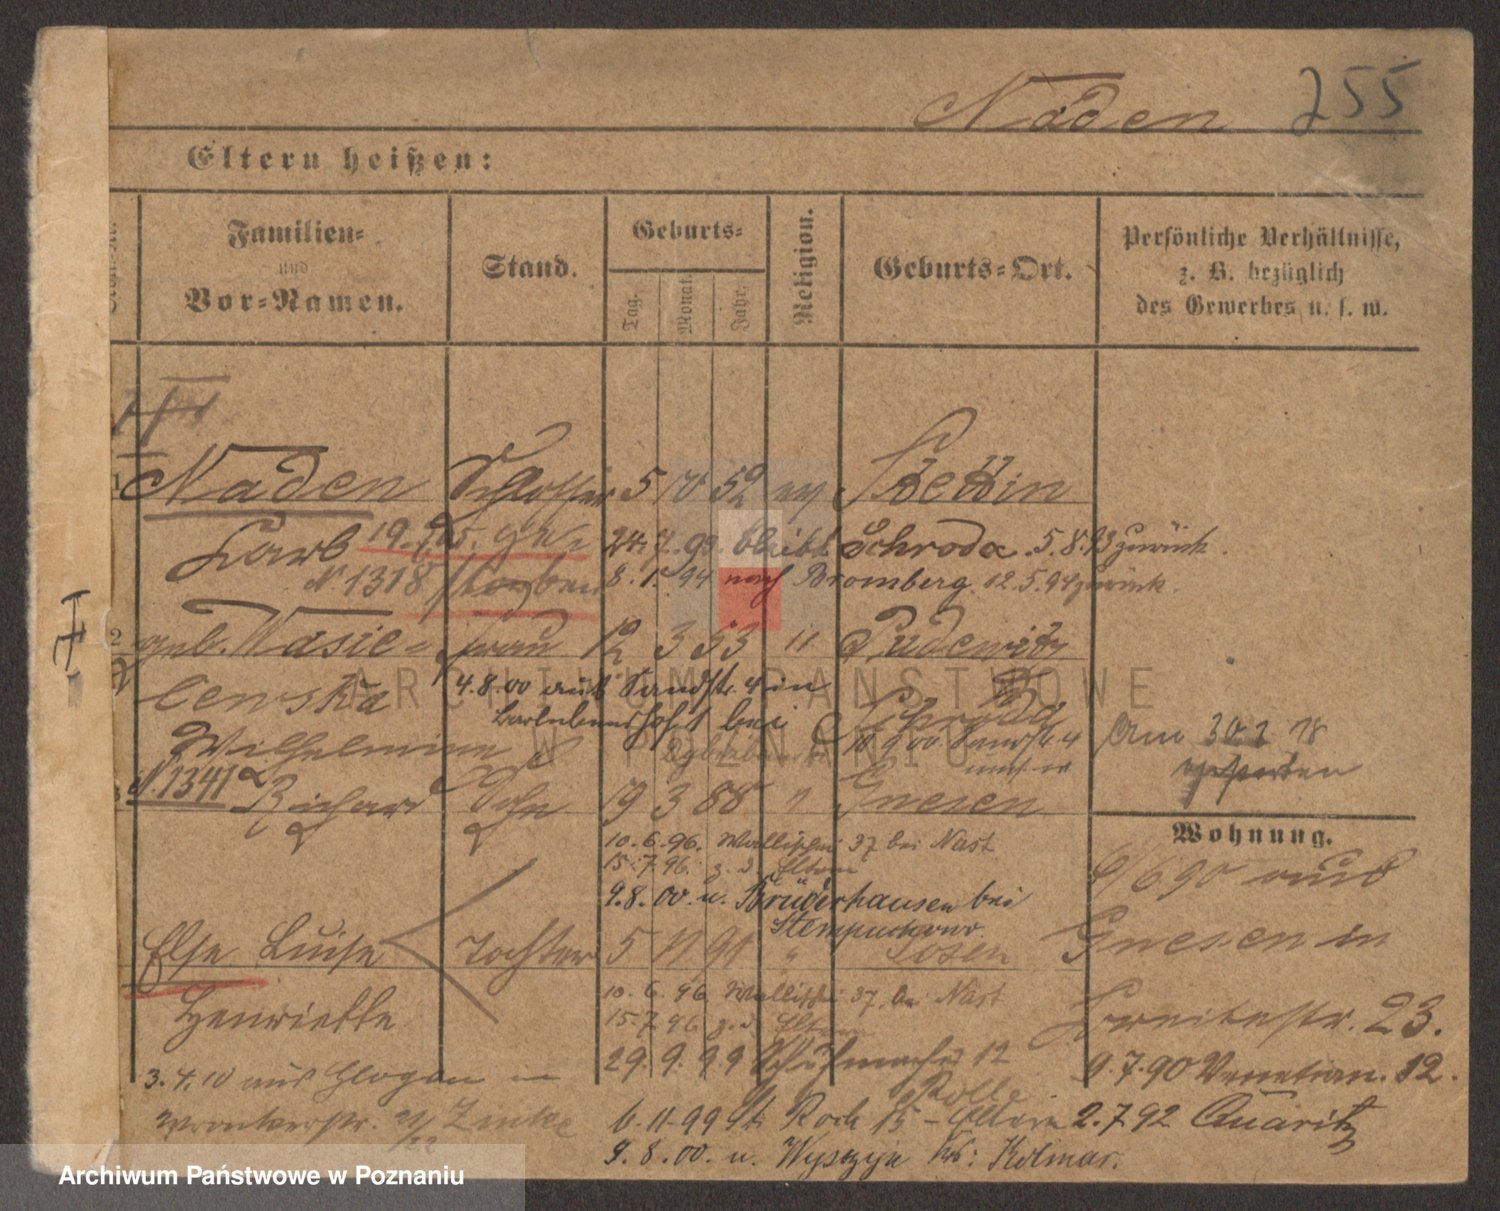 Naden 255
Eltern heißen:
Familien-
und
Vor-Namen.
Stand.
Geburts-
Tag.
Monat.
Jahr.
Religion.
Geburts-Ort.
Persönliche Verhältnisse,
z. B. bezüglich
des Gewerbes u. s. w.
1 Naden Schlosser 5 10 52 ev Stettin
Carl 24. 7. 93. bleibt Schroda. 5.8.93 zurück.
N. 1318 8. 1. 94 nach Bromberg. 12.5.94 zurück.
2 geb. Wasie- frau 12 3 53 " Pudewitz
lewska 4.8.00 aus Sandstr. 4 in
bei Schroda
Wilhelmine 10 9 00 Sandstr 4
Am 30 3 18
N. 1341 Richard Sohn 19 3 88 " Gnesen
Wohnung.
10. 6. 96. Wallischei 37 bei Nast
15. 7. 96. z. d. Eltern
9.8.00. u. Brüderhausen bei
Stempuchowo.
6/6 90 aus
Else Luise Tochter 5 11 91 " Posen
Gnesen in
Henriette
10. 6. 96 Wallischei 37 bei Nast
15. 7. 96 z. d. Eltern
Breitestr. 23.
29. 9. 99 Schuhmacher 12
9. 7. 90 Venetian. 12.
3. 4. 10 aus Glogau in
Wronkerstr. Zinke
6. 11. 99 St. Roch 15 - Eltern 2. 7. 92 Quaritz
9. 8. 00. u. Wyszyn Kr: Kolmar.
ARCHIWUM PAŃSTWOWE
W POZNANIU
Archiwum Państwowe w Poznaniu